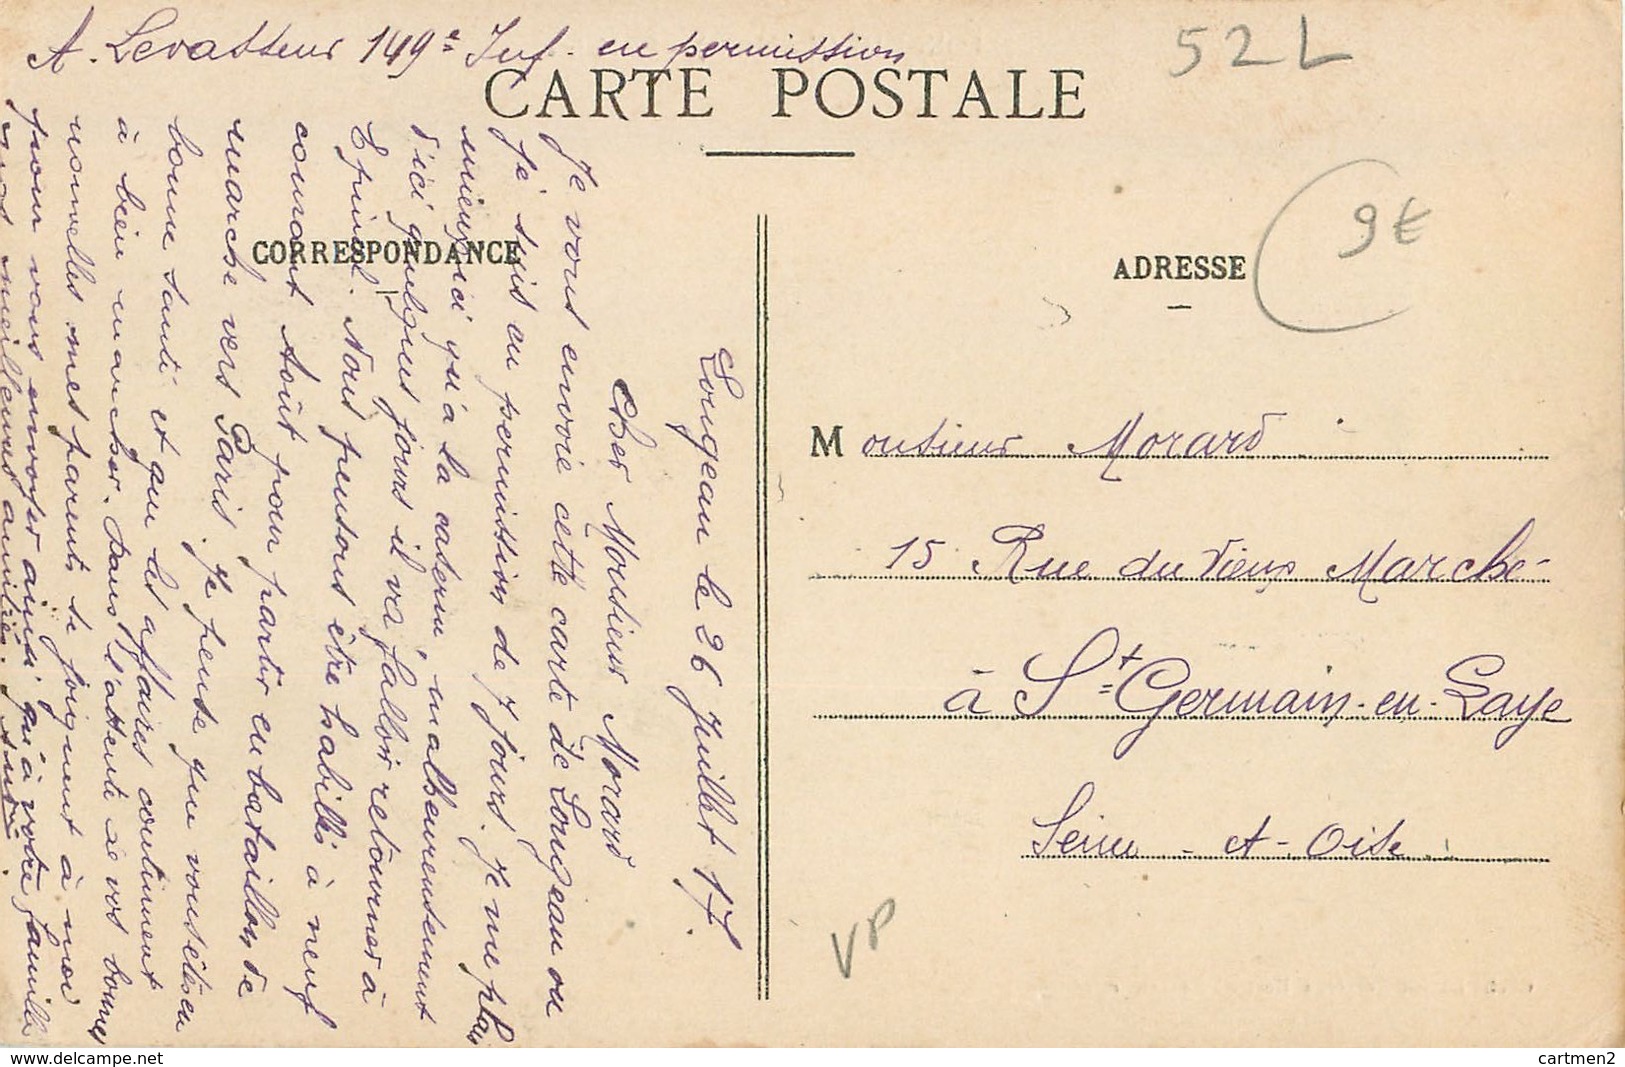 A. Levasseur 149e Inf. en permission
CARTE POSTALE
52L
CORRESPONDANCE
ADRESSE
9€
Longeau le 26 Juillet 17.
Cher Monsieur Morard
Je vous envoie cette carte de Longeau ou
je suis en permission de 7 jours. Je me plais
mieux ici qu'à la caserne, malheureusement
d'ici quelques jours il va falloir retourner à
Epinal. Nous pensons être habillés à neuf
courant Août pour partir en bataillon de
marche vers Paris. Je pense que vous êtes en
bonne santé et que les affaires continuent
à bien marcher. Dans l'attente de vos bonnes
nouvelles mes parents se joignent à moi
pour vous envoyer ainsi qu'à votre famille
nos meilleures amitiés.
Monsieur Morard
15 Rue du Vieux Marché
à St Germain-en-Laye
Seine-et-Oise
VP
www.delcampe.net
cartmen2